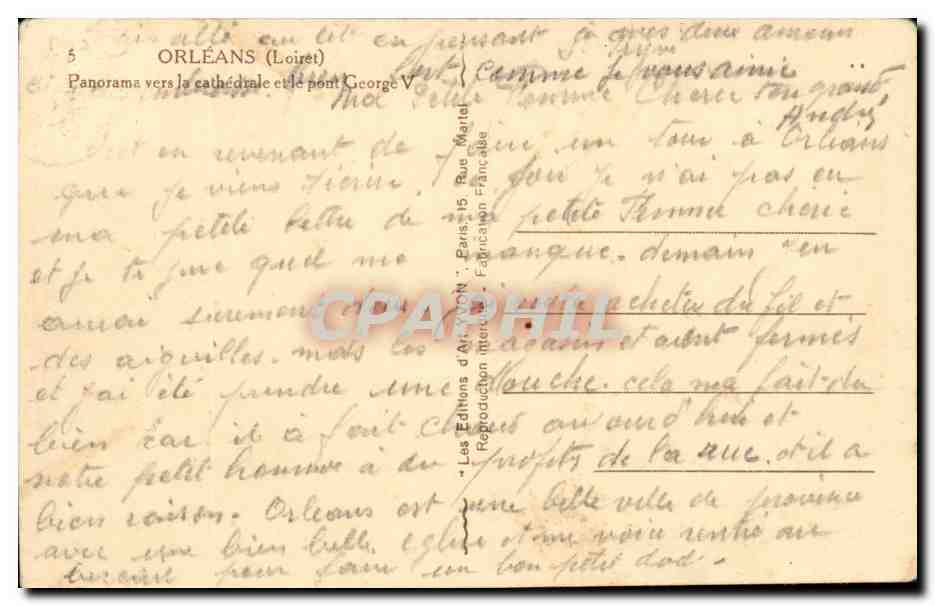 allé au lit en pensant à mes deux amours
5 ORLÉANS (Loiret)
Panorama vers la cathédrale et le pont George V
comme je vous aime
Ma Petite Femme Cherie ton grand
André
en revenant de faire un tour à Orléans
que je viens t'ecrire. je n'ai pas eu
ma petite lettre de ma petite Femme cherie
et je te jure quel me manque. demain j'en
aurai surement deux. acheter du fil et
des aiguilles. mais les magasins etaient fermés
et j'ai été prendre une douche. cela ma fait du
bien car il a fait chaud aujourd'hui et
notre petit homme à du profité de la rue. et il a
bien raison. Orleans est une belle ville de province
avec une bien belle Eglise et me voici rentré au
pour faire un bon petit dodo.
"Les Editions d'Art YVON", Paris, 15, Rue Martel
Reproduction interdite - Fabrication Française
CPAPHIL